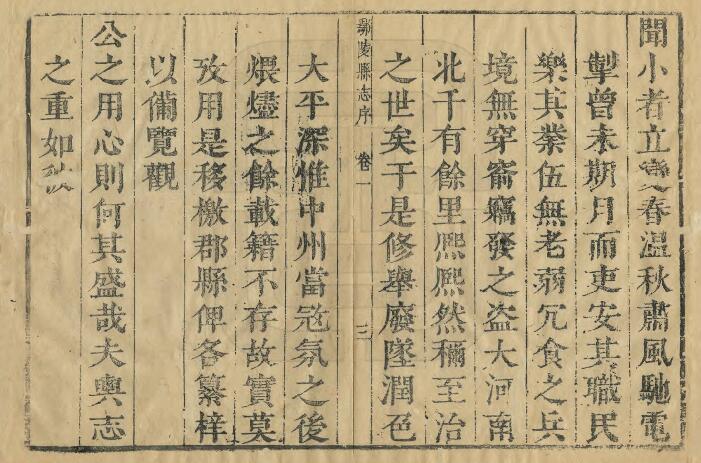 聞小者立變春溫秋肅風馳電
掣曾未期月而吏安其職民
樂其業伍無老弱冗食之兵
境無穿窬竊發之盜大河南
北千有餘里熈熈然稱至治
之世矣于是修舉廢墜潤色
鄢陵縣志序 卷一 三
大平深惟中州當冦氛之後
煨燼之餘載籍不存故實莫
攷用是移檄郡縣俾各纂梓
以備覽觀
公之用心則何其盛哉夫輿志
之重如